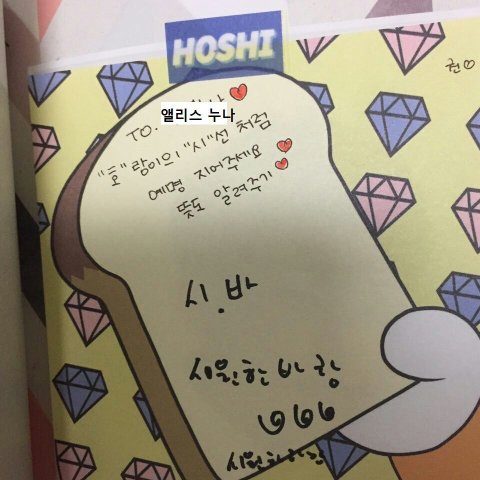 HOSHI
권♡
TO. 앨리스 누나❤
"호"랑이의 "시"선 처럼
예명 지어주세요❤
뜻도 알려주기❤
시.바
시원한 바람